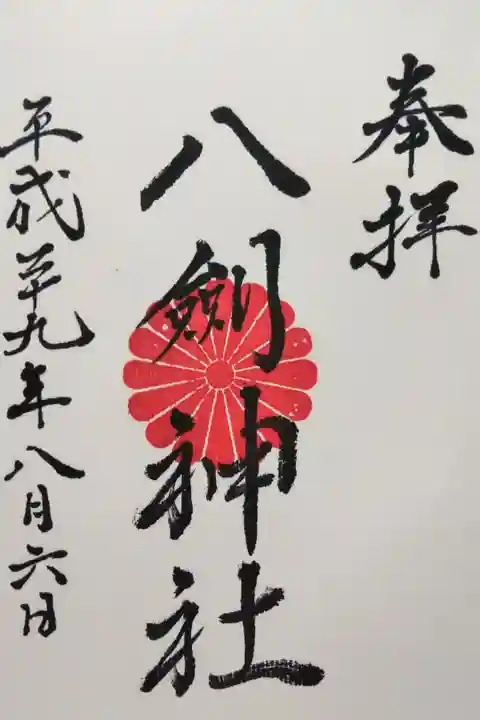 奉拝
八剱神社
平成廿九年八月六日